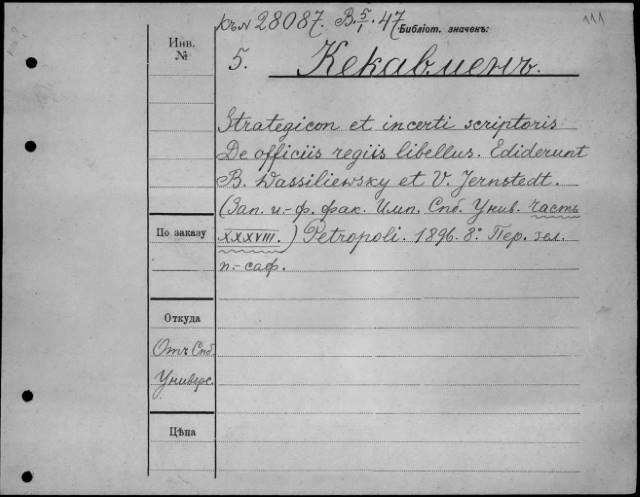 къ № 28087. В. 5/I. 47
Библіот. значекъ:
111
Инв. №
5. Кекавменъ.
Strategicon et incerti scriptoris
De officiis regiis libellus. Ediderunt
B. Wassiliewsky et V. Jernstedt.
(Зап. и.-ф. фак. Имп. Спб. Унив. часть
По заказу
XXXVIII.) Petropoli. 1896. 8°. Пер. зел.
п.-саф.
Откуда
Отъ Спб.
Универс.
Цѣна